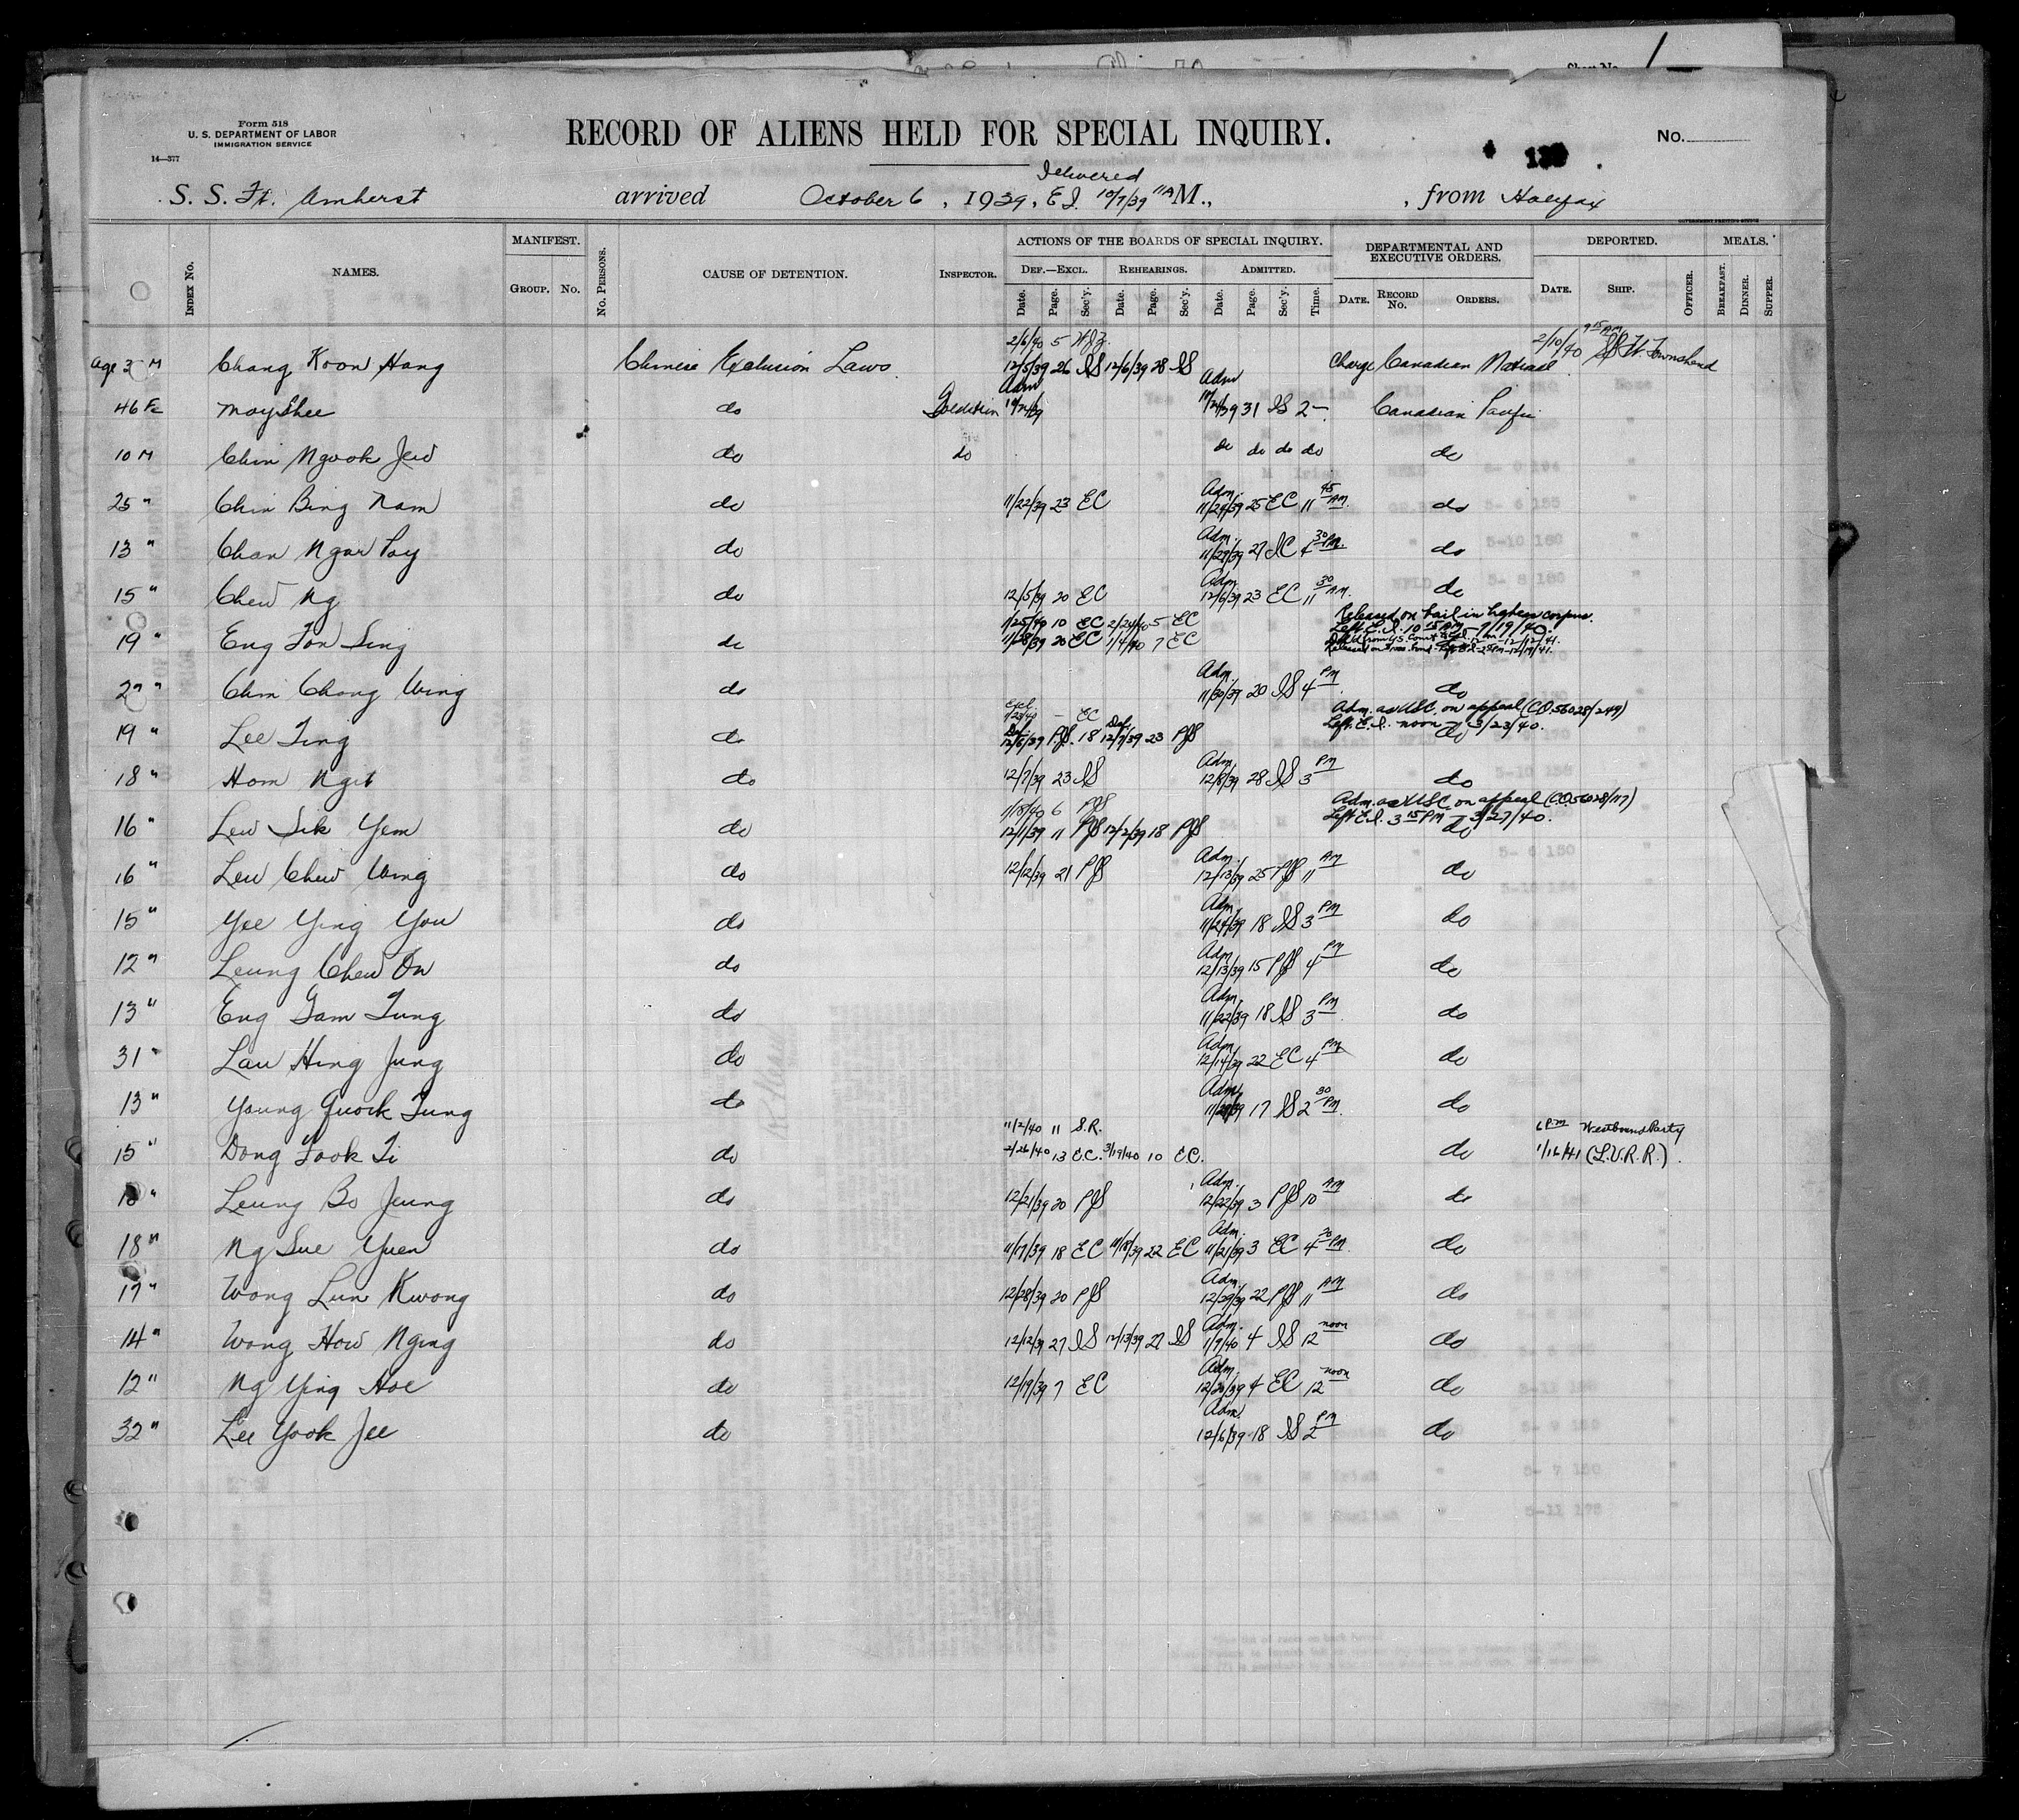 Form 518
U. S. DEPARTMENT OF LABOR
IMMIGRATION SERVICE
14—377
RECORD OF ALIENS HELD FOR SPECIAL INQUIRY.
No.
S. S. Ft. Amherst arrived October 6, 1939, Delivered E.I. 10/7/39 11 A M., , from Halifax
INDEX No. NAMES. MANIFEST. GROUP. No. No. PERSONS. CAUSE OF DETENTION. INSPECTOR. ACTIONS OF THE BOARDS OF SPECIAL INQUIRY. DEF.—EXCL. Date. Page. Sec'y. REHEARINGS. Date. Page. Sec'y. ADMITTED. Date. Page. Sec'y. Time. DEPARTMENTAL AND EXECUTIVE ORDERS. DATE. RECORD No. ORDERS. DEPORTED. DATE. SHIP. OFFICER. MEALS. BREAKFAST. DINNER. SUPPER.
2/6/40 5 2/10/40 9 15 AM SS Ft. Townshend
Age M Chang Koon Hang Chinese Exclusion Laws 12/5/39 26 IS 12/6/39 28 IS Charge Canadian National
46 Fe Moy Shee do Goldstein Adm 10/24/39 Adm 10/24/39 31 IS 2— Canadian Pacific
10 M Chin Ngook Jew do do do do do do do
25 " Chin Bing Nam do 11/22/39 23 EC Adm. 11/24/39 25 EC 11 45 AM. do
13 " Chan Ngar Poy do Adm. 11/27/39 27 4 30 PM. do
15 " Chew Ng do 12/5/39 20 EC Adm. 12/6/39 23 EC 11 30 AM. do
1/25/40 10 EC 2/24/40 5 EC Released on bail in habeas corpus.
Left E.I. 10 15 AM — 7/19/40.
19 " Eng Fon Sing do 11/28/39 20 EC 1/4/40 7 EC
" Chin Chong Wing do Adm. 11/30/39 20 IS 4 PM do
Excl. 1/23/40 — EC Adm. as USC. on appeal (C.O. 56028/249)
Left E.I. noon — 3/23/40.
19 " Lee Ting do Def. 12/6/39 PJS. 18 Def. 12/7/39 23 PJS do
18 " Hom Ngit do 12/7/39 23 IS Adm. 12/8/39 28 IS 3 PM do
1/18/40 6 PJS Adm. as USC. on appeal (C.O. 56028/117)
Left E.I. 3 15 PM — 3/27/40.
16 " Lew Sik Yem do 12/1/39 11 PJS 12/2/39 18 PJS do
16 " Lew Chew Wing do 12/12/39 21 PJS Adm. 12/13/39 25 PJS 11 AM do
15 " Yee Ying You do Adm. 11/24/39 18 IS 3 PM do
12 " Leung Chew On do Adm 12/13/39 15 PJS 4 PM do
13 " Eng Gam Tung do Adm. 11/22/39 18 IS 3 PM do
31 " Lau Hing Jung do Adm. 12/14/39 22 EC 4 PM do
13 " Young Quock Tung do Adm. 17 IS 2 30 PM. do
11/2/40 11 S.R. 6 PM Westbound Party
15 " Dong Fook Ti do 2/26/40 13 E.C. 3/19/40 10 E.C. do 1/16/41 (L.V.R.R.).
" Leung Bo Jeung do 12/21/39 20 PJS Adm. 12/22/39 3 PJS 10 AM do
18 " Ng Sue Yuen do 11/17/39 18 EC 11/18/39 22 EC Adm. 11/21/39 3 EC 4 PM. do
17 " Wong Lun Kwong do 12/28/39 20 PJS Adm. 12/29/39 22 PJS 11 AM do
14 " Wong How Nging do 12/12/39 27 IS 12/13/39 27 IS Adm. 1/9/40 4 IS 12 noon do
12 " Ng Ying Hoe do 12/19/39 7 EC Adm. 12/20/39 4 EC 12 noon do
32 " Lee Yook Jee do Adm. 12/6/39 18 IS 2 PM do